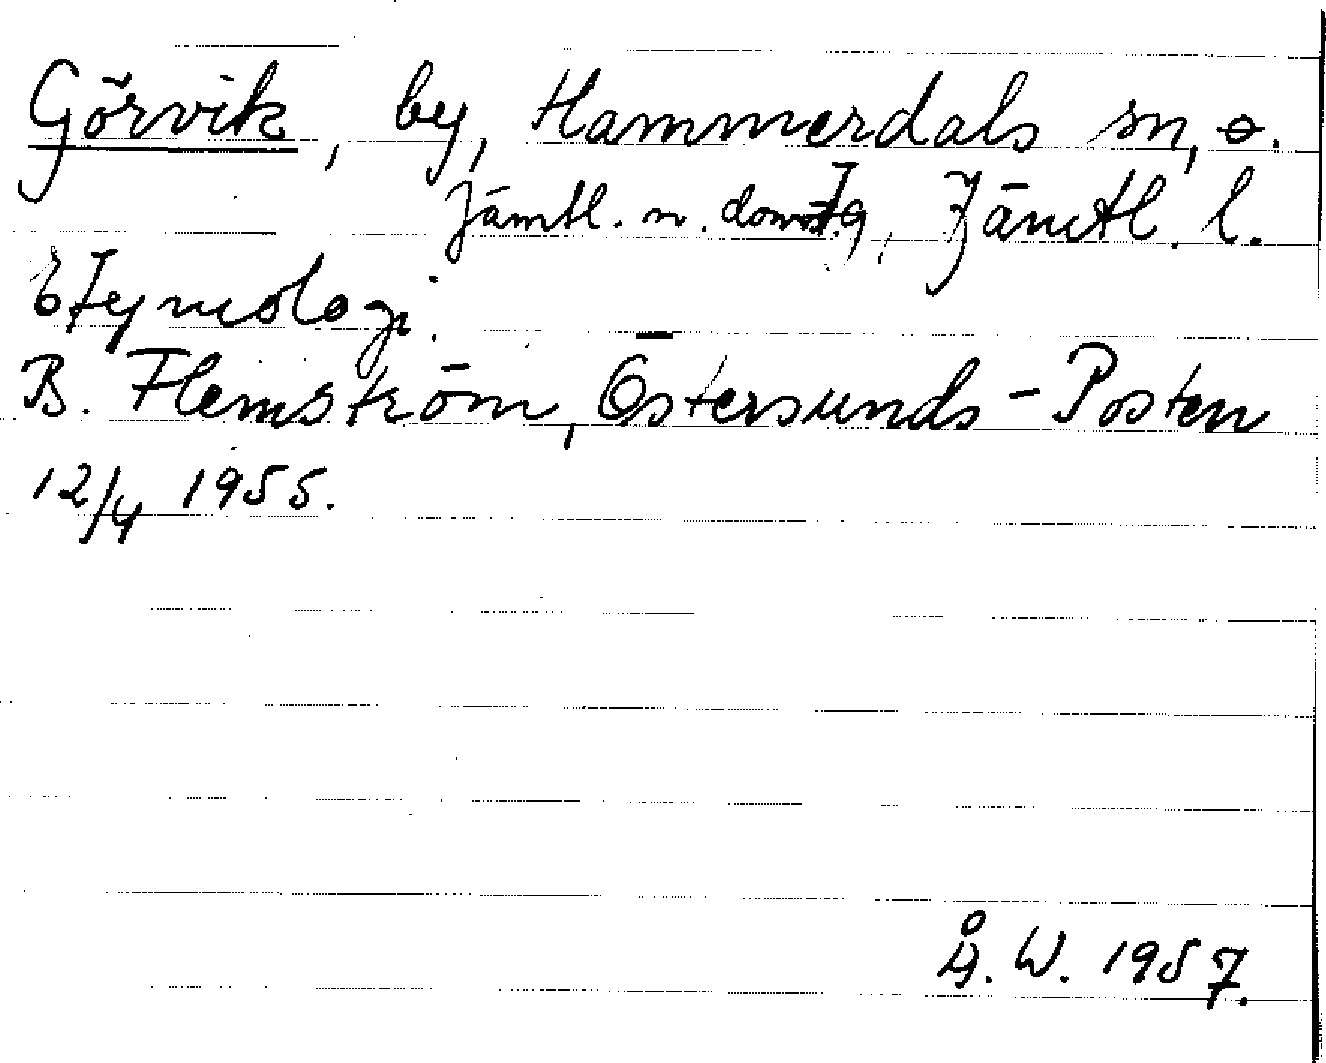 Görvik, by, Hammerdals sn, o.
Jämtl. n. domsag, Jämtl. l.
Etymologi.
B. Flemström, Östersunds-Posten
12/4 1955.
Å. W. 1957.